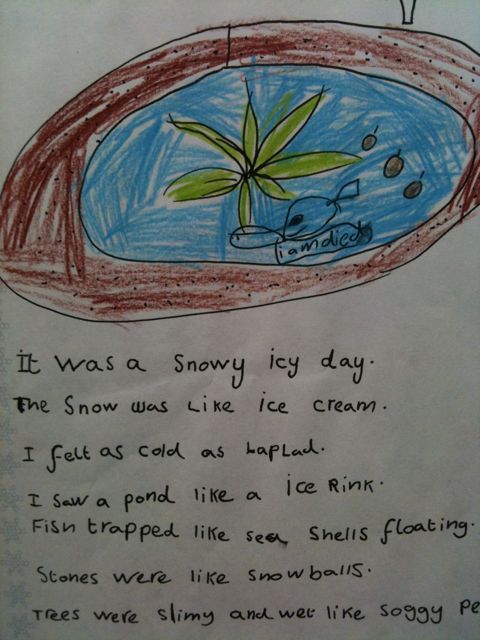 i am died
It was a snowy icy day.
The Snow was Like ice cream.
I felt as cold as Laplad.
I saw a pond like a ice Rink.
Fish trapped like sea shells floating.
Stones were like snowballs.
Trees were slimy and wet like soggy